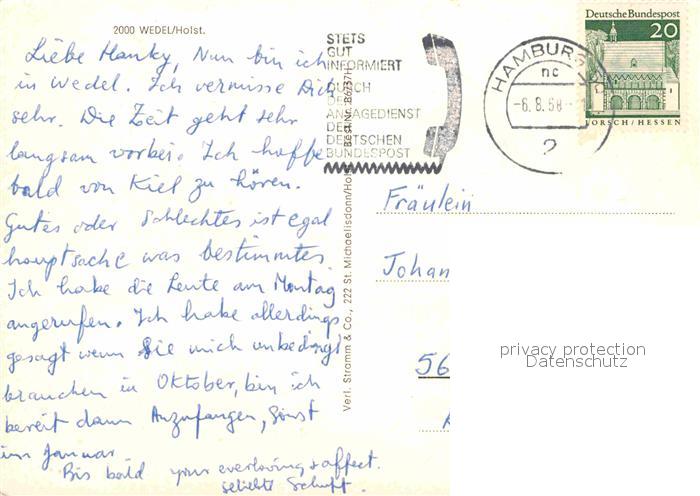 2000 WEDEL/Holst.
Liebe Hanky, Nun bin ich
in Wedel. Ich vermisse Dich
sehr. Die Zeit geht sehr
langsam vorbei. Ich hoffe
bald von Kiel zu hören.
Gutes oder Schlechtes ist egal
hauptsache was bestimmtes
Ich habe die Leute am Montag
angerufen. Ich habe allerdings
gesagt wenn Sie mich unbedingt
brauchen in Oktober, bin ich
bereit dann Anzufangen, Sonst
im Januar
Bis bald your everloving & affect.
geliebte
Verl. Stromm & Co., 222 St. Michaelisdonn/Hols
Best.Nr. B6737H
STETS
GUT
INFORMIERT
DURCH
DEN
ANSAGEDIENST
DER
DEUTSCHEN
BUNDESPOST
HAMBURG
nc
-6.8.68
2
Deutsche Bundespost
20
LORSCH/HESSEN
Fräulein
Johan
56
privacy protection
Datenschutz